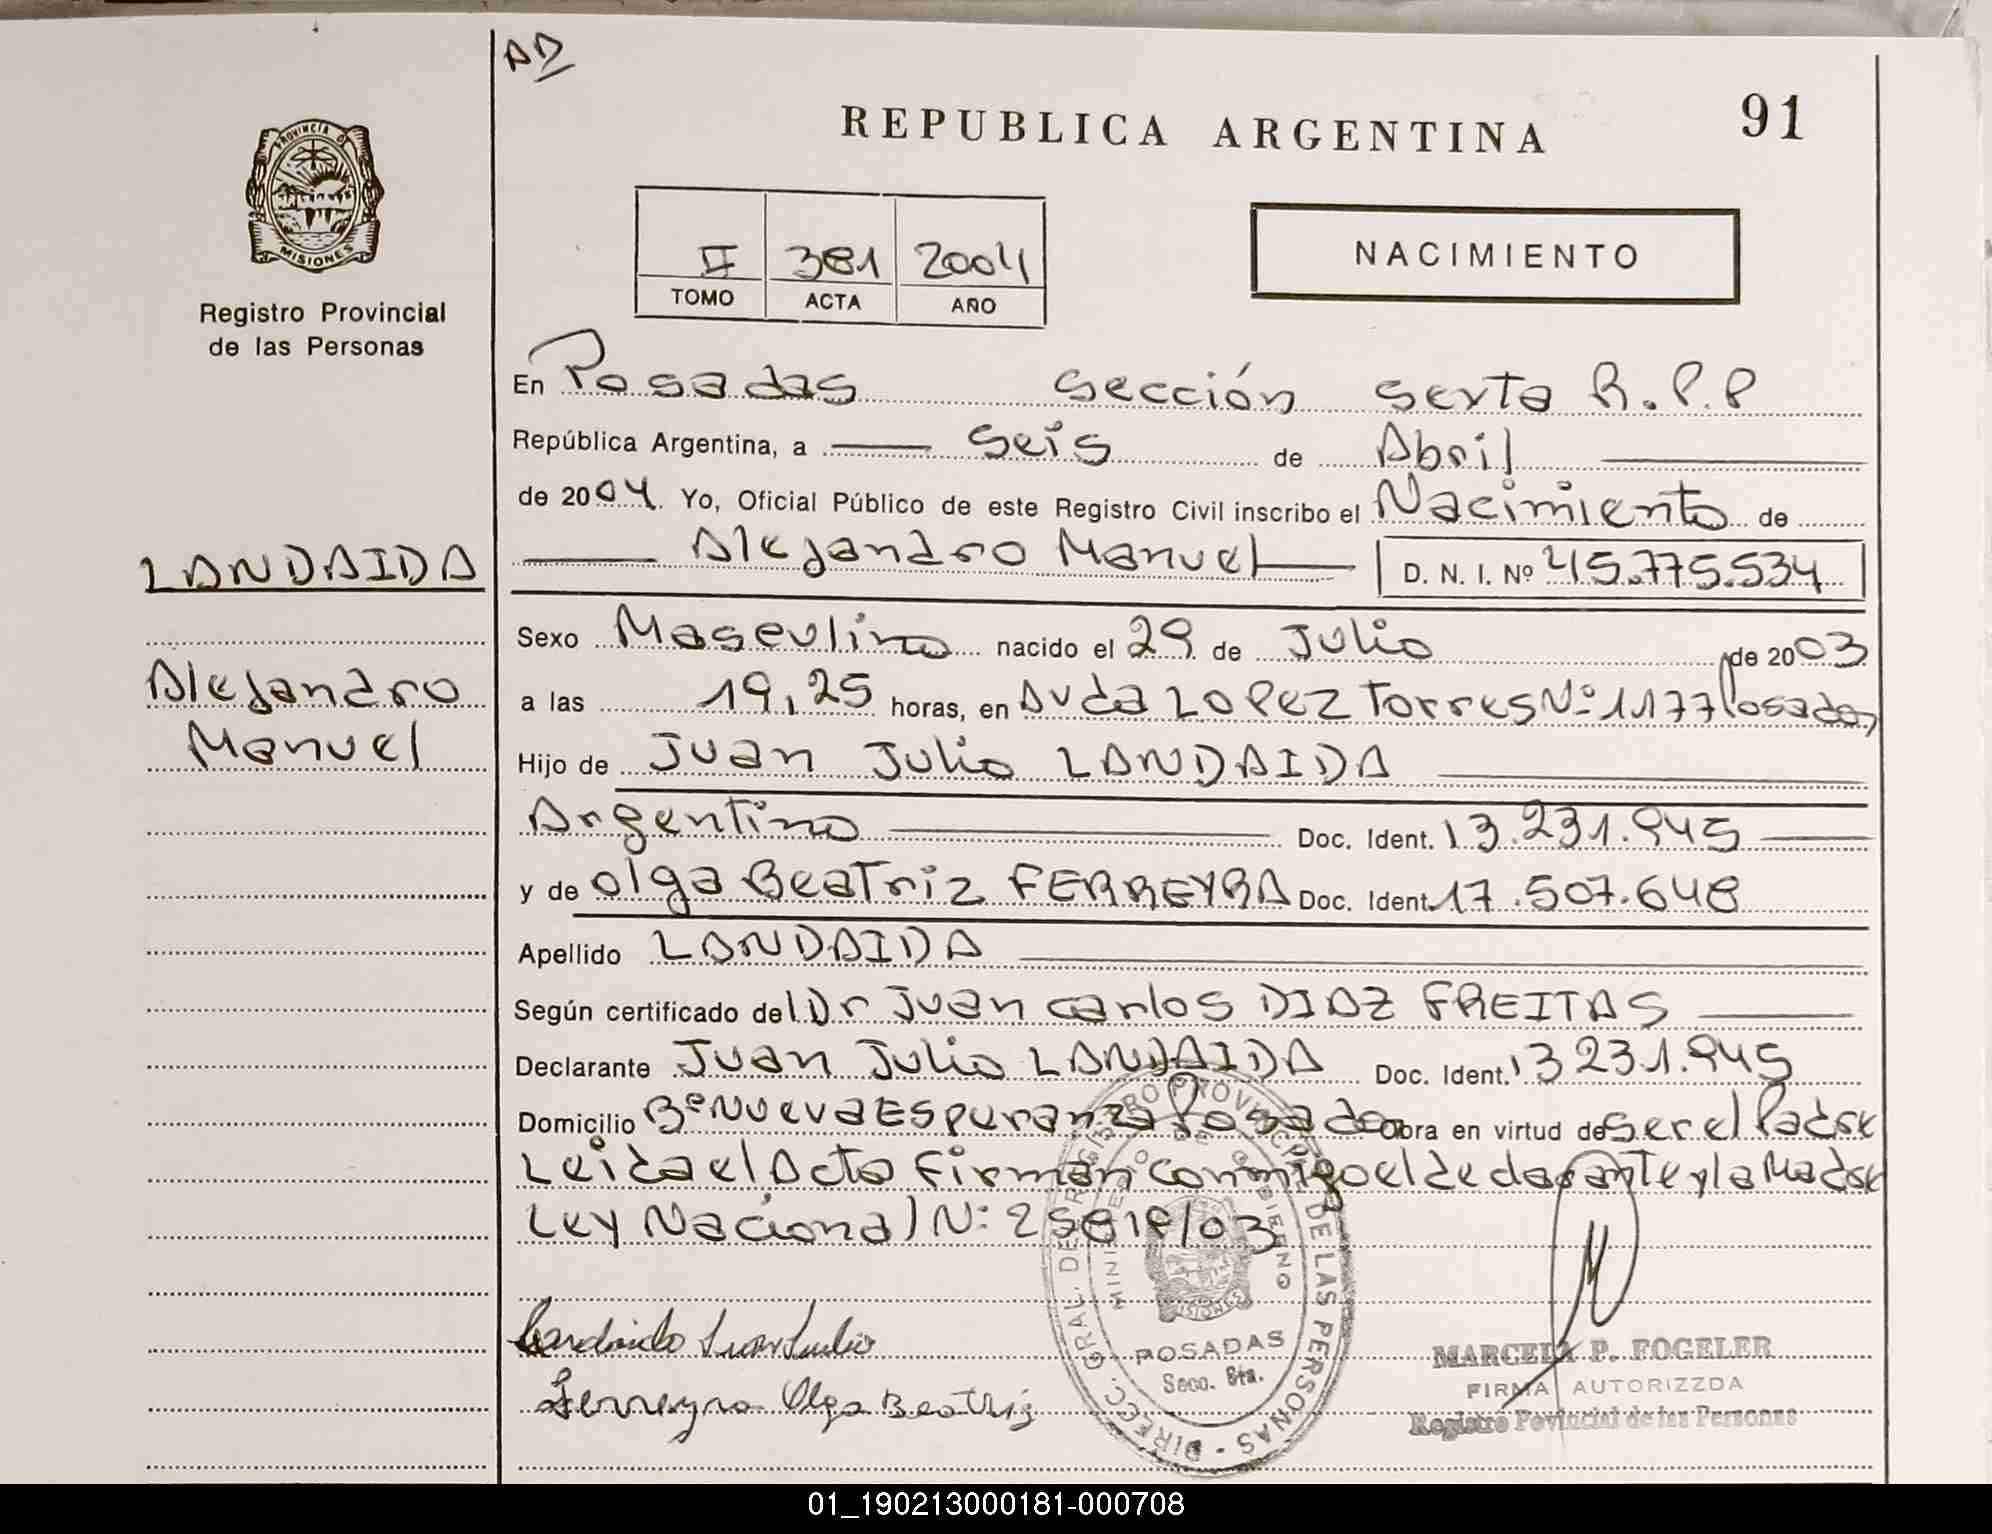 AD
REPUBLICA ARGENTINA
91
PROVINCIA DE
MISIONES
Registro Provincial
de las Personas
II 381 2004
TOMO ACTA AÑO
NACIMIENTO
En Posadas sección sexta R.P.P
República Argentina, a seis de Abril
de 2004. Yo, Oficial Público de este Registro Civil inscribo el Nacimiento de
LANDAIDA
Alejandro Manuel D. N. I. Nº 45.775.534
Sexo Masculino nacido el 29 de Julio de 2003
Alejandro
Manuel
a las 19,25 horas, en Avda Lopez Torres Nº 1177 Posadas
Hijo de Juan Julio LANDAIDA
Argentino Doc. Ident. 13.231.945
y de Olga Beatriz FERREYRA Doc. Ident. 17.507.648
Apellido LANDAIDA
Según certificado del Dr Juan Carlos DIAZ FREITAS
Declarante Juan Julio LANDAIDA Doc. Ident. 13 231.945
Domicilio Bº Nueva Esperanza Posadas Obra en virtud de ser el Padre
Leida el Acta Firman conmigo el declarante y la Madre
Ley Nacional Nº 25819/03
DIREC. GRAL. DE REGISTRO PROVINCIAL DE LAS PERSONAS
MINISTERIO DE GOBIERNO
MISIONES
POSADAS
Secc. 6ta.
Landaida Juan Julio
Ferreyra Olga Beatriz
MARCELA P. FOGELER
FIRMA AUTORIZZDA
Registro Povincial de las Personas
01_190213000181-000708